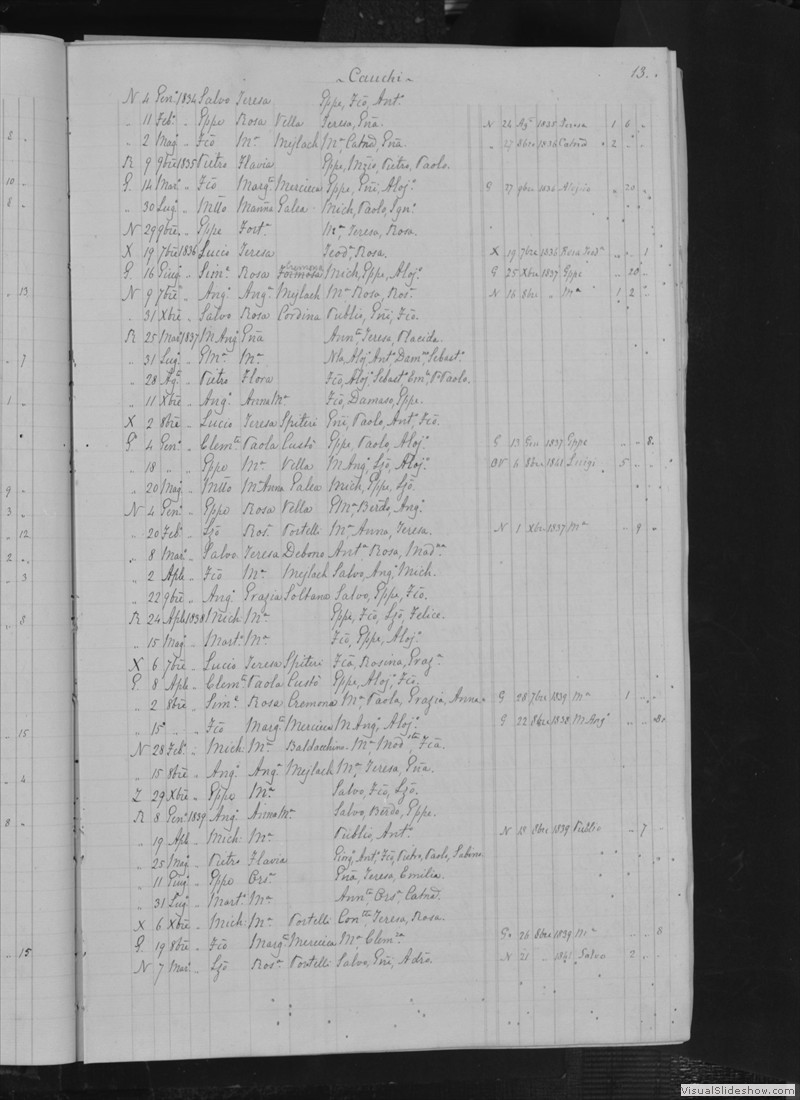 ~ Cauchi ~ 13.
N 4 Genº 1834 Salvo Teresa Gppe, Fcõ, Antº
„ 11 Febº „ Gppe Rosa Vella Teresa, Gña. N 24 Agº 1835 Teresa 1 6 „
2 „ 2 Magº „ Fcõ Mª Mejlach Mª, Catnª, Gña. „ 27 8bre 1836 Catnª 2 „
R 9 9bre 1835 Pietro Flavia Gppe, Pietro, Paolo.
10 G 14 Marº „ Fcõ Margª Mercieca Gppe, Gni, Alojº G 27 9bre 1836 Alojsio „ 20 „
8 „ 30 Lugº „ Mtto Marina Galea Mich, Paolo, Ignº
N 29 9bre „ Gppe Fortª Mª, Teresa, Rosa.
X 19 7bre 1836 Lucio Teresa Teodª, Rosa. X 19 7bre 1836 Rosa Teodª „ „ 1
G 16 Giugº „ Simª Rosa Formosa Cremona Mich, Gppe, Alojº G 25 Xbre 1837 Gppe „ 10 „
13 N 9 7bre „ Angº Angª Mejlach Mª Rosa, Rosª N 16 8bre „ Mª 1 2 „
„ 31 Xbre „ Salvo Rosa Cordina Publio, Gni, Fcõ.
R 25 Marº 1837 M. Angº Gña Annª, Teresa, Placida.
7 „ 31 Lugº „ Gmª Mª Nla, Alojº, Antº Damº, Sebastº
„ 28 Agº „ Pietro Flora Fcõ, Alojº Sebastº Emª, P. Paolo.
1 „ 11 Xbre „ Angº Anna Mª Fcõ, Damaso, Gppe.
X 2 8bre „ Lucio Teresa Spiteri Gni, Paolo, Antº, Fcõ.
G 4 Genº „ Clemte Paola Custò Gppe, Paolo, Alojº G 13 Gen 1837 Gppe „ „ 8.
„ 18 „ „ Gppe Mª Vella M. Angº, Ljõ, Alojº 6 8bre 1861 Luigi 5 „ „
9 „ 20 Magº „ Mtto Mª Anna Galea Mich, Gppe, Ljõ.
3 N 4 Genº „ Gppe Rosa Vella Gmª, Berdo, Angº
12 „ 20 Febº „ Ljõ Rosª Portelli Mª, Anna, Teresa. N 1 Xbre 1837 Mª „ 9 „
2 „ 8 Marº „ Salvo Teresa Debono Antª Rosa, Madnª
3 „ 2 Aple „ Fcõ Mª Mejlach Salvo, Angº, Mich.
„ 22 9bre „ Angº Grazia Soltana Salvo, Gppe, Fcõ.
8 R 24 Aple 1838 Mich Mª Gppe, Fcõ, Ljõ, Felice.
„ 15 Magº „ Martº Mª Fcõ, Gppe, Alojº
X 6 7bre „ Lucio Teresa Spiteri Fcã, Rosina, Grazª
G 8 Aple „ Clemte Paola Custò Gppe, Alojº, Fcõ.
„ 2 8bre „ Simª Rosa Cremona Mª, Paola, Grazia, Anna. G 28 7bre 1839 Mª 1 „ „
15 „ 15 „ „ Fcõ Margª Mercieca M. Angº, Alojº G 22 8bre 1838 M. Angº
N 28 Febº „ Mich. Mª Baldacchino Mª, Modta, Fcã.
4 „ 15 8bre „ Angº Angª Mejlach Mª, Teresa, Gña.
Z 29 Xbre „ Gppe Mª Salvo, Fcõ, Ljõ.
8 R 8 Genº 1839 Angº Anna Mª Salvo, Berdo, Gppe.
„ 19 Aple „ Mich. Mª Publio, Antº N 18 8bre 1839 Publio „ 7 „
„ 25 Magº „ Pietro Flavia Antº Fcõ, Pietro, Paolo, Sabino
„ 11 Giugº „ Gppe Orsª Gña, Teresa, Emilia.
„ 31 Lugº „ Martº Mª Annª, Orsª, Catnª.
X 6 Xbre „ Mich. Mª Portelli Conta, Teresa, Rosa.
G 19 8bre „ Fcõ Margª Mercieca Mª, Clemza G 26 8bre 1839 Mª „ „ 8
15 N 7 Marº „ Ljõ Rosª Portelli Salvo, Gni, Adrõ. N 21 „ 1841 Salvo 2 „ „
VisualSlideshow.com